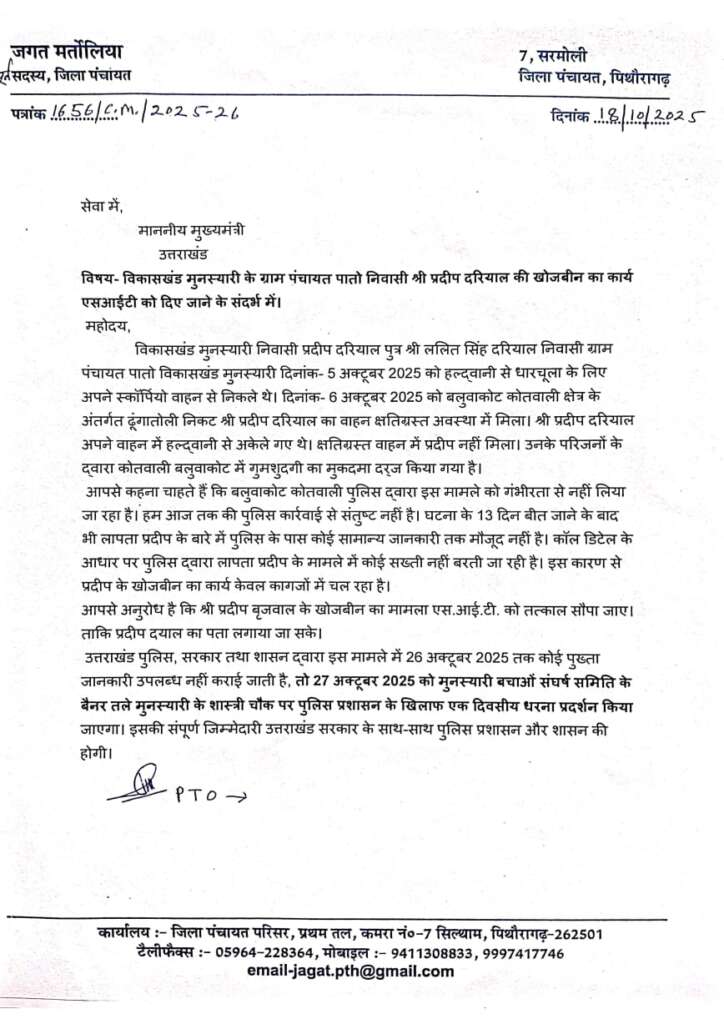 जगत मर्तोलिया
पूर्व सदस्य, जिला पंचायत
7, सरमोली
जिला पंचायत, पिथौरागढ़
पत्रांक 1656/C.M./2025-26
दिनांक 18/10/2025
सेवा में,
माननीय मुख्यमंत्री
उत्तराखंड
विषय- विकासखंड मुनस्यारी के ग्राम पंचायत पातो निवासी श्री प्रदीप दरियाल की खोजबीन का कार्य
एसआईटी को दिए जाने के संदर्भ में।
महोदय,
विकासखंड मुनस्यारी निवासी प्रदीप दरियाल पुत्र श्री ललित सिंह दरियाल निवासी ग्राम
पंचायत पातो विकासखंड मुनस्यारी दिनांक- 5 अक्टूबर 2025 को हल्द्वानी से धारचूला के लिए
अपने स्कॉर्पियो वाहन से निकले थे। दिनांक- 6 अक्टूबर 2025 को बलुवाकोट कोतवाली क्षेत्र के
अंतर्गत ढूंगातोली निकट श्री प्रदीप दरियाल का वाहन क्षतिग्रस्त अवस्था में मिला। श्री प्रदीप दरियाल
अपने वाहन में हल्द्वानी से अकेले गए थे। क्षतिग्रस्त वाहन में प्रदीप नहीं मिला। उनके परिजनों के
द्वारा कोतवाली बलुवाकोट में गुमशुदगी का मुकदमा दर्ज किया गया है।
आपसे कहना चाहते हैं कि बलुवाकोट कोतवाली पुलिस द्वारा इस मामले को गंभीरता से नहीं लिया
जा रहा है। हम आज तक की पुलिस कार्रवाई से संतुष्ट नहीं है। घटना के 13 दिन बीत जाने के बाद
भी लापता प्रदीप के बारे में पुलिस के पास कोई सामान्य जानकारी तक मौजूद नहीं है। कॉल डिटेल के
आधार पर पुलिस द्वारा लापता प्रदीप के मामले में कोई सख्ती नहीं बरती जा रही है। इस कारण से
प्रदीप के खोजबीन का कार्य केवल कागजों में चल रहा है।
आपसे अनुरोध है कि श्री प्रदीप बृजवाल के खोजबीन का मामला एस.आई.टी. को तत्काल सौपा जाए।
ताकि प्रदीप दयाल का पता लगाया जा सके।
उत्तराखंड पुलिस, सरकार तथा शासन द्वारा इस मामले में 26 अक्टूबर 2025 तक कोई पुख्ता
जानकारी उपलब्ध नहीं कराई जाती है, तो 27 अक्टूबर 2025 को मुनस्यारी बचाओं संघर्ष समिति के
बैनर तले मुनस्यारी के शास्त्री चौक पर पुलिस प्रशासन के खिलाफ एक दिवसीय धरना प्रदर्शन किया
जाएगा। इसकी संपूर्ण जिम्मेदारी उत्तराखंड सरकार के साथ-साथ पुलिस प्रशासन और शासन की
होगी।
PTO →
कार्यालय :- जिला पंचायत परिसर, प्रथम तल, कमरा नं०-7 सिल्थाम, पिथौरागढ़-262501
टैलीफैक्स :- 05964-228364, मोबाइल :- 9411308833, 9997417746
email-jagat.pth@gmail.com